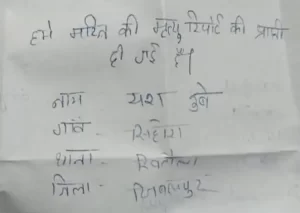 हमे मरित की मृत्यु रिपोर्ट की प्राप्ती
दी गई है।
नाम यश दुबे
गांव - सिहोरा
थाना - खितौला
जिला - जबलपुर